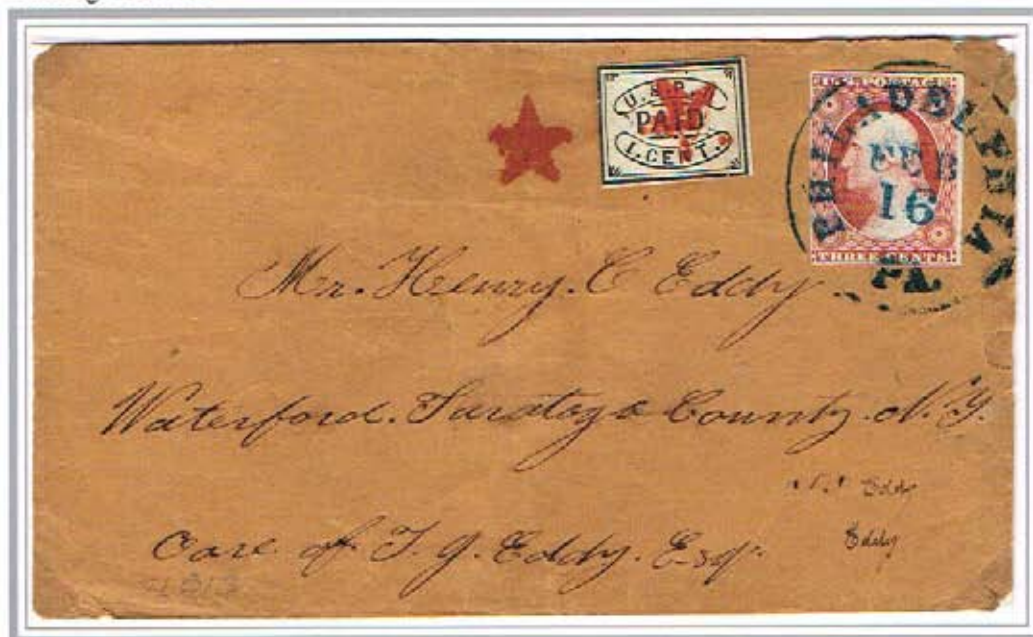 U.S.P.
PAID
1.CENT.
U.S. POSTAGE
THREE CENTS
PHILADELPHIA
FEB
16
PA.
Mr. Henry. C Eddy.
Waterford. Saratoga County. N.Y.
Eddy
Care of T. J. Eddy. Esqr.
Eddy